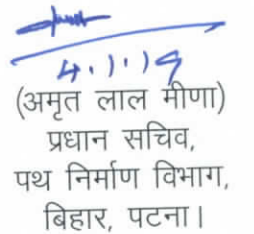 4.1.19
(अमृत लाल मीणा)
प्रधान सचिव,
पथ निर्माण विभाग,
बिहार, पटना।